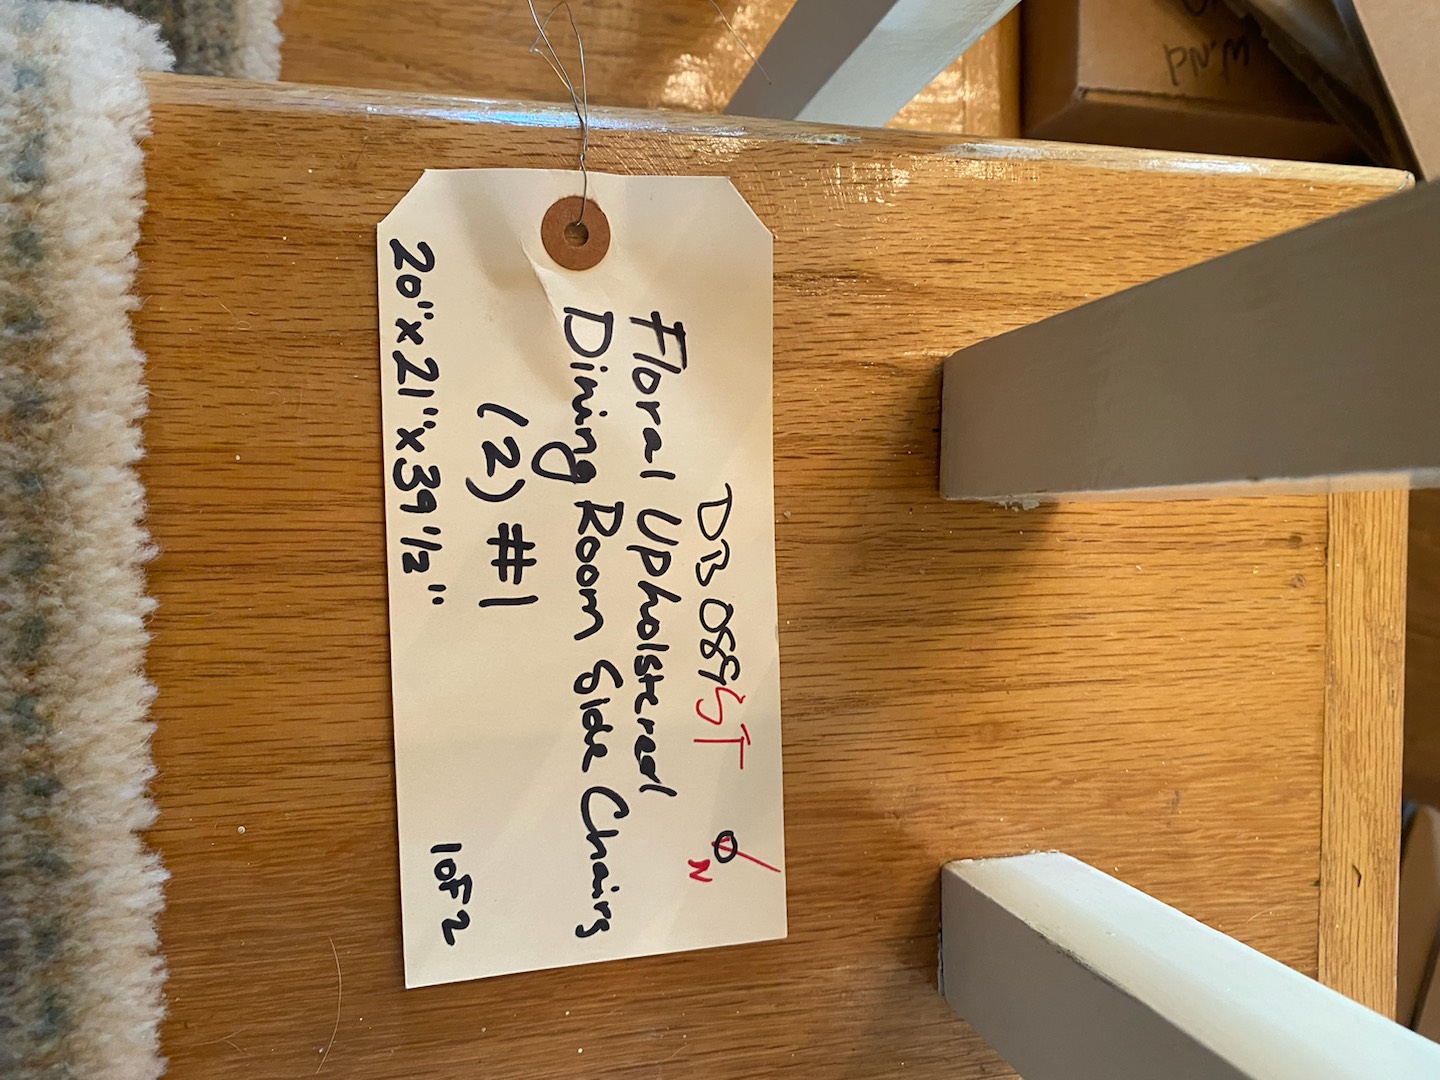 DB0895T
Floral Upholstered
Dining Room Side Chairs
(2) #1
20"x21"x39 1/2"
1 of 2
N